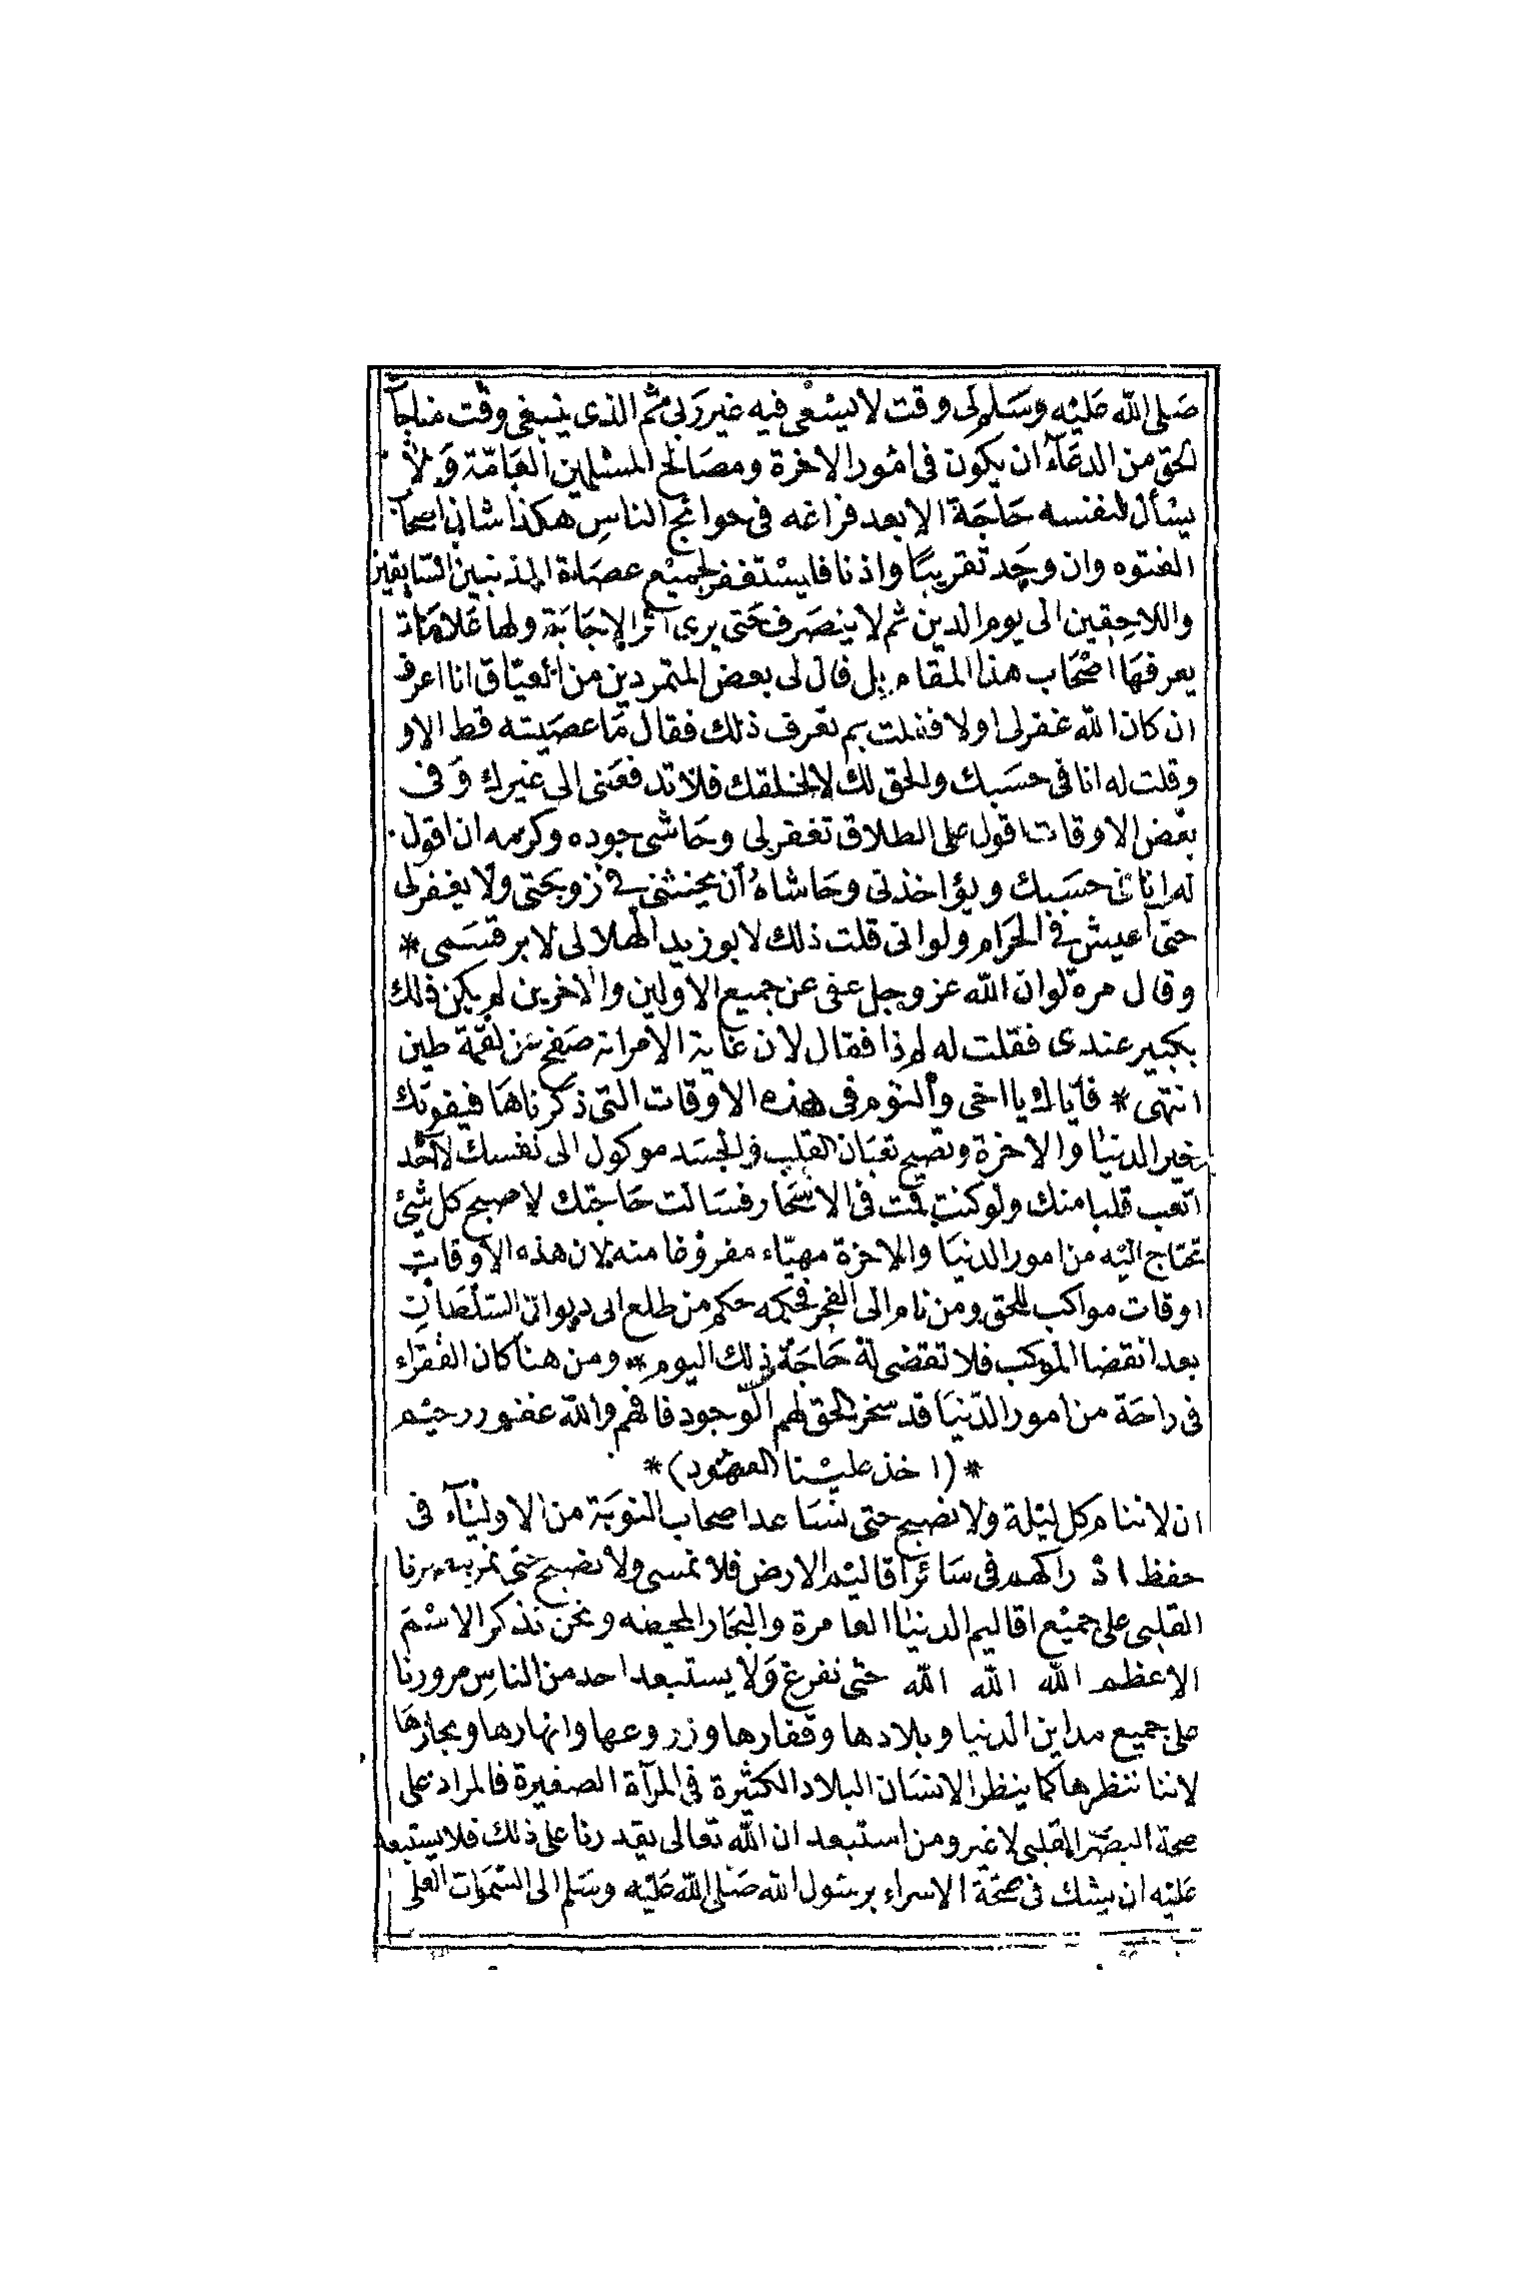 صلى الله عليه وسلم لى وقت لا يسعنى فيه غير ربى ثم الذى ينبغى وقت مناجاة
الحق من الدعآء ان يكون فى امور الاخرة ومصالح المسلمين العامّة وَلا
يسأل لنفسه حَاجَة الا بعد فراغه فى حوائج الناس هكذا شان اصحاب
الفتوه وان وجد تقريبًا واذنا فليستغفر لجميع عصاة المذنبين السّابقين
واللاحقين الى يوم الدين ثم لا ينصرف حَتى يرى آثر الاجَابَة ولها عَلامَات
يعرفهَا اصْحَاب هذا المقام بل قال لى بعض المتمردين من العيّاق انا اعرف
ان كان الله غفر لى اولا فقلت بم تعرف ذلك فقال مَا عصَيته قط الا و
وقلت له انا فى حسَبك والحق لك لا لخلقك فلا تدفعنى الى غيرك وَفى
بعض الاوقات اقول على الطلاق تغفر لى وحَاشى جوده وكرمه ان اقول
له انا فى حسَبك ويؤاخذنى وحَاشاهُ أن يحنثنى فى زوجتى ولا يغفر لى
حتى اعيش فى الحرَام ولو انى قلت ذلك لابو زيد الهلالى لابر قسَمى *
وقال مرة لو ان الله عز وجل عفى عن جميع الاولين والاخرين لم يكن ذلك
بكبير عندى فقلت له لم ذا فقال لان غاية الامر انه صَفح عن لقمة طين
انتهى * فأياك يا اخى والنوم فى هذه الاوقات التى ذكرناهَا فيفوتك
خير الدنيا والاخرة وتصبح تعبَان القلب والجسَد موكول الى نفسك لا احد
اتعب قلبا منك ولو كنت قمت فى الاسْحَار فسَالت حَاجتك لاصبح كل شئ
تحتاج اليْه من امور الدنيَا والاخرة مهيّاء مفروغا منه لان هذه الاوقات
اوقات مواكب للحق ومن نام الى الفجر فحكمه حكم من طلع الى ديوان السّلطان
بعد انقضا الموكب فلا تقضى له حَاجَة ذلك اليوم * ومن هنا كان الفقراء
فى راحَة من امور الدّنيَا قد سخر الحق لهم الوجود فافهم والله غفور رحيْم
*(اخذ عليْنا العهُود)*
ان لا ننام كل ليْلة ولا نصبح حتى نسَاعد اصحاب النوبَة من الاوليَآء فى
حفظ ادراكهم فى سَائر اقاليْم الارض فلا نمسى ولا نصبح حتى نمر بيه برنا
القلبى على جميْع اقاليم الدنيا العامرة والبحَار المحيضه ونحن نذكر الاسْمَ
الاعظم الله الله الله حتى نفرغ وَلا يستبعد احد من الناس مرورنا
على جميع مداين الدنيا وبلادها وقفارها وزروعها وانهارها وبحارهَا
لاننا ننظرها كما ينظر الانسَان البلاد الكثيرة فى المرآة الصغيرة فالمراد على
صحة البصَر القلبى لا غير ومن استبعد ان الله تعالى يقدرنا على ذلك فلا يستبعد
عَليْه ان يشك فى صحّة الاسراء برسُول الله صَلى الله عَليْه وسَلم الى السّموَات العلى